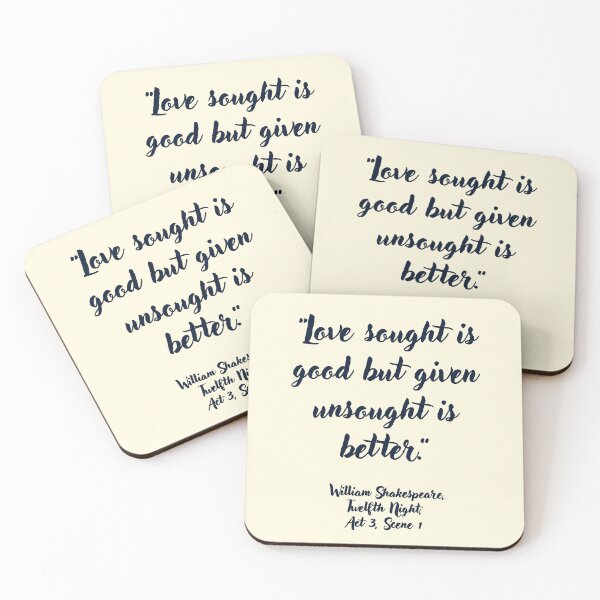 "Love sought is
good but given
is
"Love sought is
good but given
unsought is
better."
"Love sought is
good but given
unsought is
better."
William
Twelfth
Act 3,
"Love sought is
good but given
unsought is
better."
William Shakespeare,
Twelfth Night,
Act 3, Scene 1